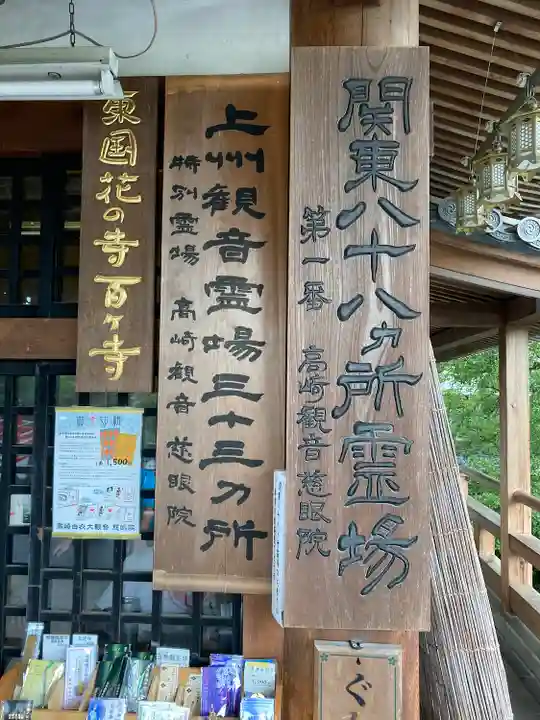 関東八十八ヵ所霊場
第一番 高崎観音慈眼院
上州観音霊場三十三カ所
特別霊場 高崎観音慈眼院
東国花の寺百ヶ寺
1,500
高崎白衣大観音 慈眼院